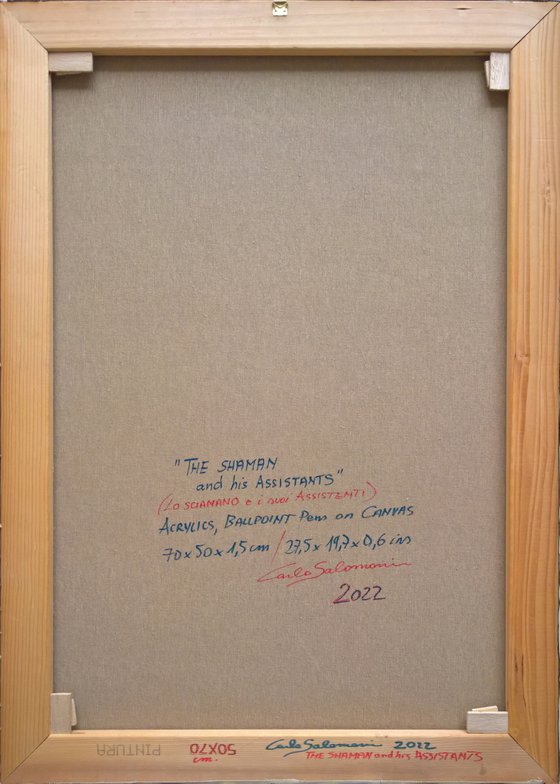 "THE SHAMAN
and his ASSISTANTS"
(LO SCIAMANO e i suoi ASSISTENTI)
ACRYLICS, BALLPOINT Pens on CANVAS
70x50x1,5 cm / 27,5x19,7x0,6 ins
Carlo Salomoni
2022
PINTURA 50X70 cm. Carlo Salomoni 2022
THE SHAMAN and his ASSISTANTS